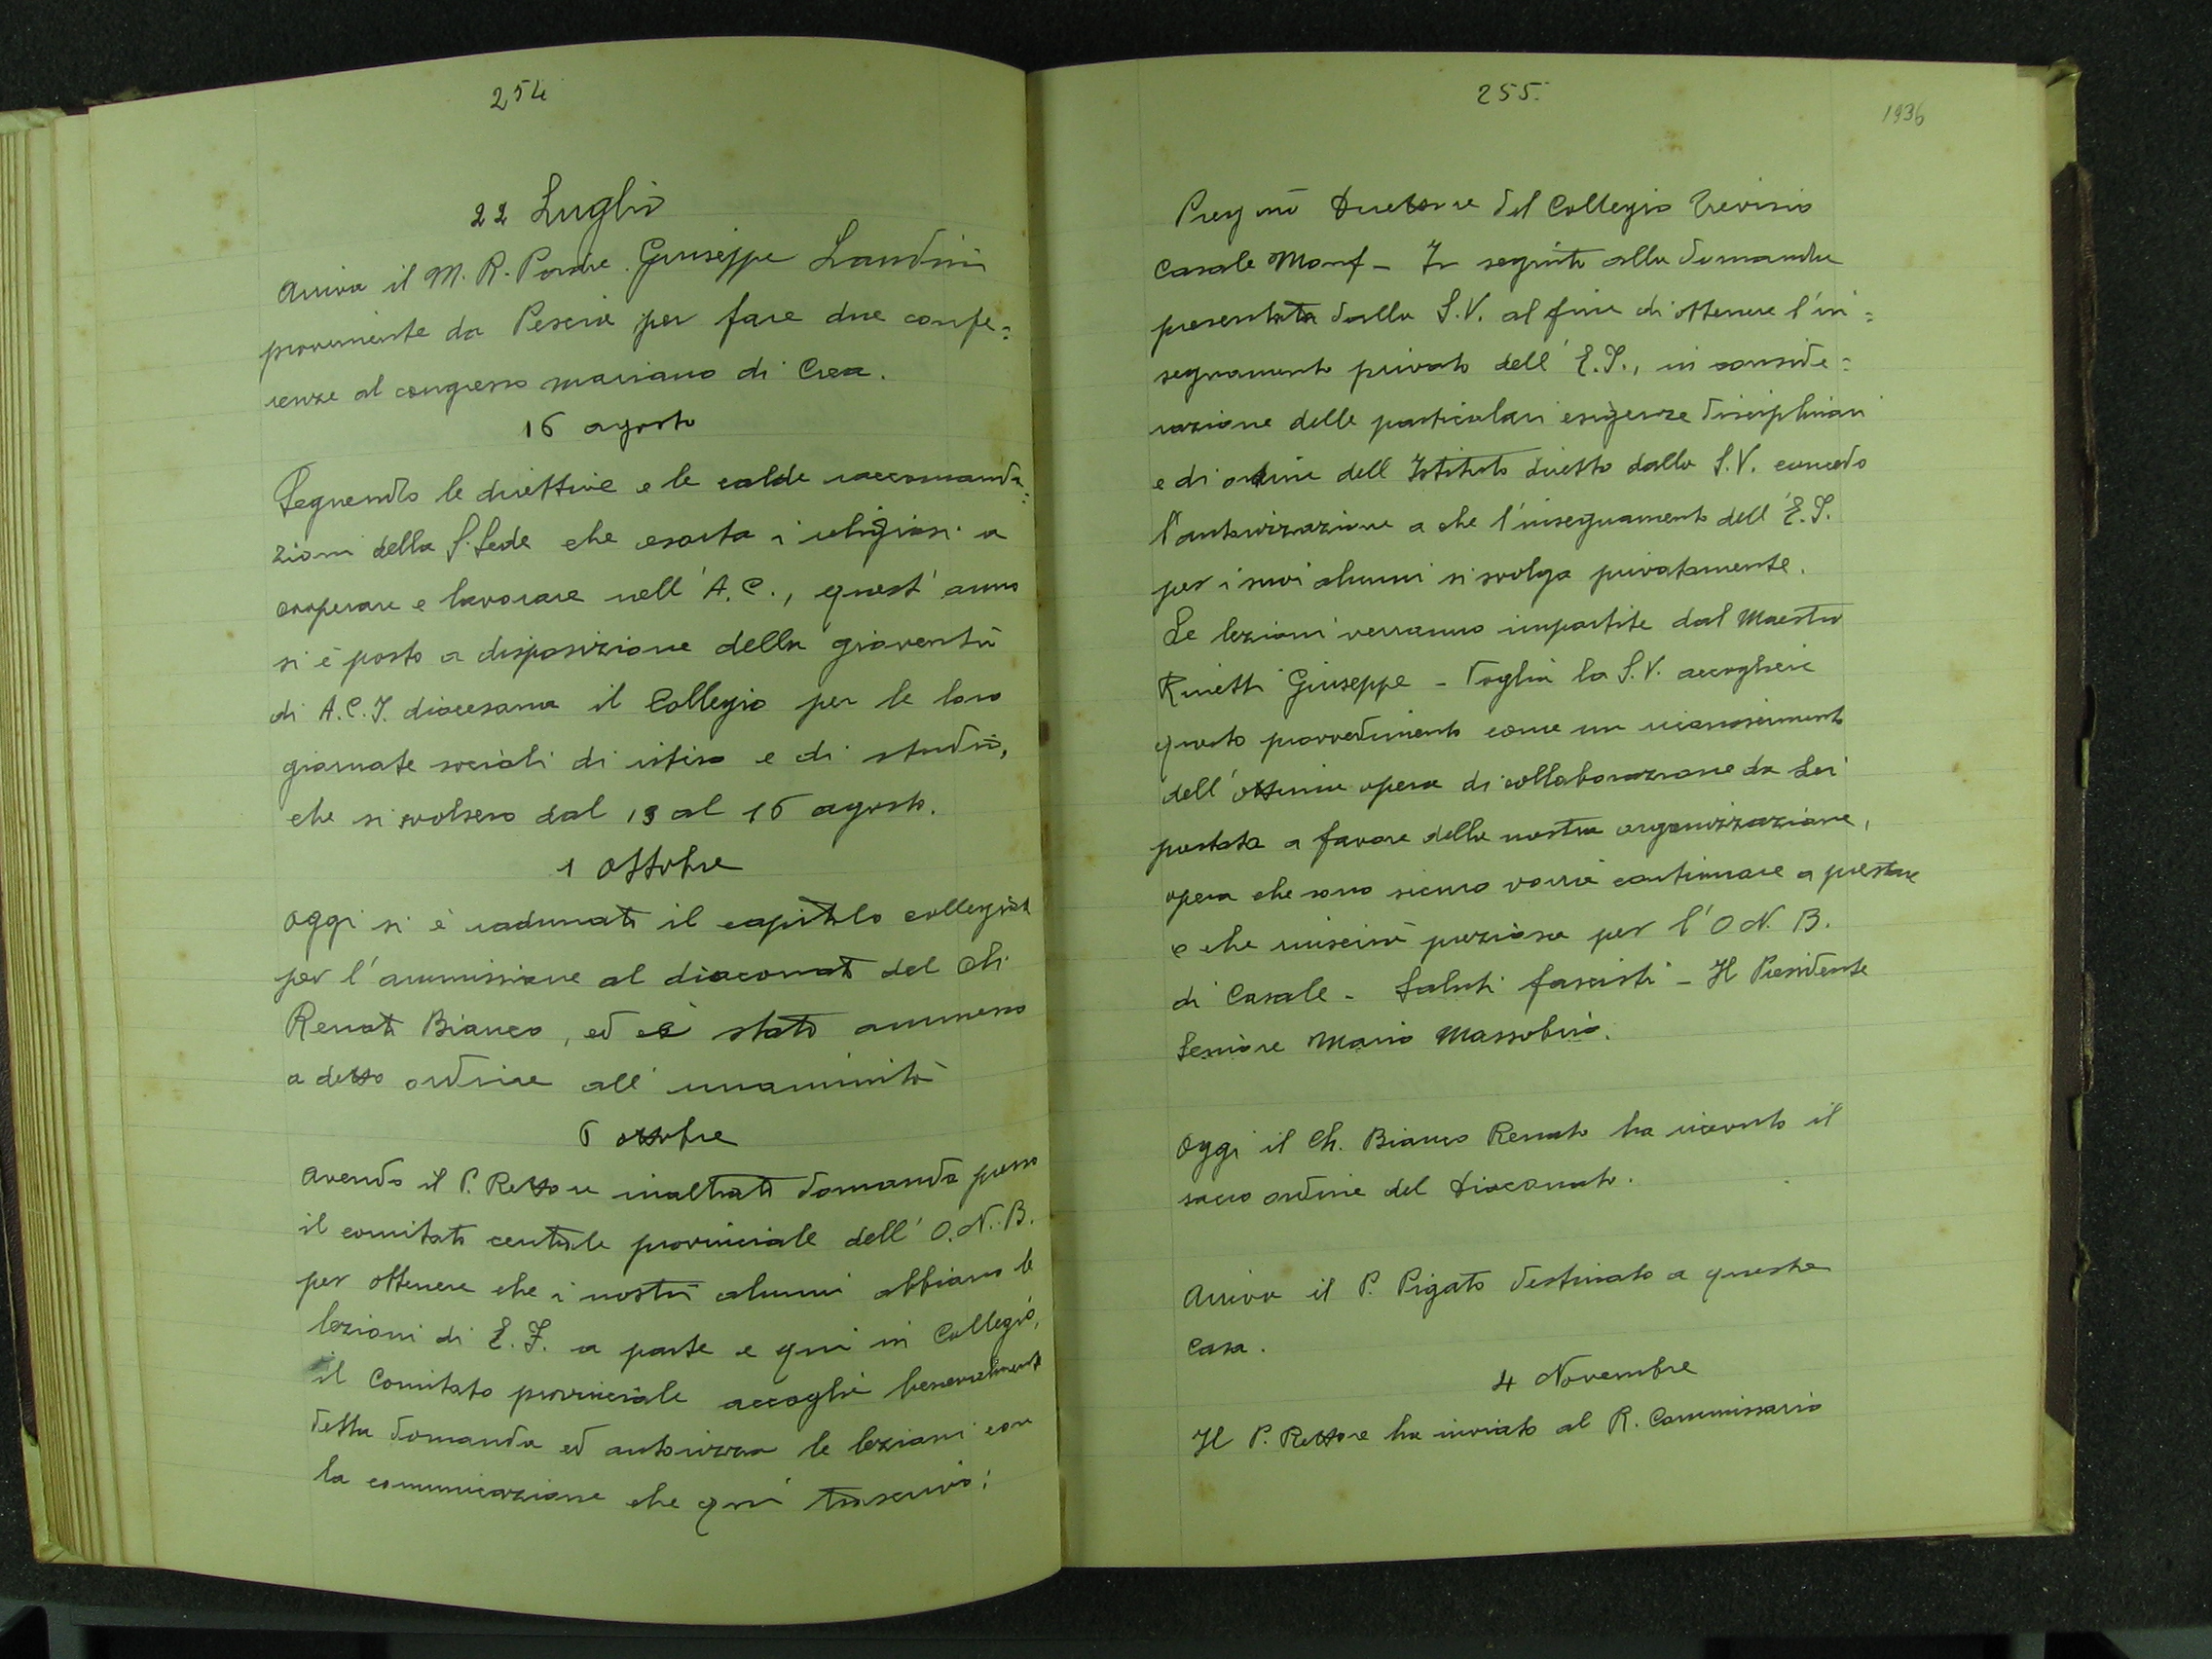 254
22 Luglio
Arriva il M. R. Padre Giuseppe Landini
proveniente da Pescia per fare due confe=
renze al congresso mariano di Crea.
16 agosto
Seguendo le direttive e le calde raccomanda=
zioni della S. Sede che esorta i religiosi a
cooperare e lavorare nell'A.C., quest'anno
si è posto a disposizione della gioventù
di A.C.I. diocesana il Collegio per le loro
giornate sociali di ritiro e di studio,
che si svolsero dal 13 al 16 agosto.
1 Ottobre
Oggi si è radunato il capitolo collegiale
per l'ammissione al diaconato del Ch.
Renato Bianco, ed è stato ammesso
a detto ordine all'unanimità
6 ottobre
Avendo il P. Rettore inoltrato domanda presso
il comitato centrale provinciale dell'O.N.B.
per ottenere che i nostri alunni abbiano le
lezioni di E.F. a parte e qui in Collegio,
il Comitato provinciale accoglie benevolmente
detta domanda ed autorizza le lezioni con
la comunicazione che qui trascrivo:
255.
1936
Pregmo Direttore del Collegio Trevisio
Casale Monf - In seguito alla domanda
presentata dalla S.V. al fine di ottenere l'in=
segnamento privato dell'E.F., in conside=
razione delle particolari esigenze disciplinari
e di ordine dell Istituto diretto dalla S.V. concedo
l'autorizzazione a che l'insegnamento dell'E.F.
per i suoi alunni si svolga privatamente.
Le lezioni verranno impartite dal Maestro
Rinetti Giuseppe - Voglia la S.V. accogliere
questo provvedimento come un riconoscimento
dell'ottima opera di collaborazione da Lei
prestata a favore della nostra organizzazione,
opera che sono sicuro vorrà continuare a prestare
e che riuscirà preziosa per l'O.N.B.
di Casale - Saluti fascisti - Il Presidente
Seniore Mario Massobrio.
Oggi il Ch. Bianco Renato ha ricevuto il
sacro ordine del Diaconato.
Arriva il P. Pigato destinato a questa
casa.
4 Novembre
Il P. Rettore ha inviato al R. Commissario